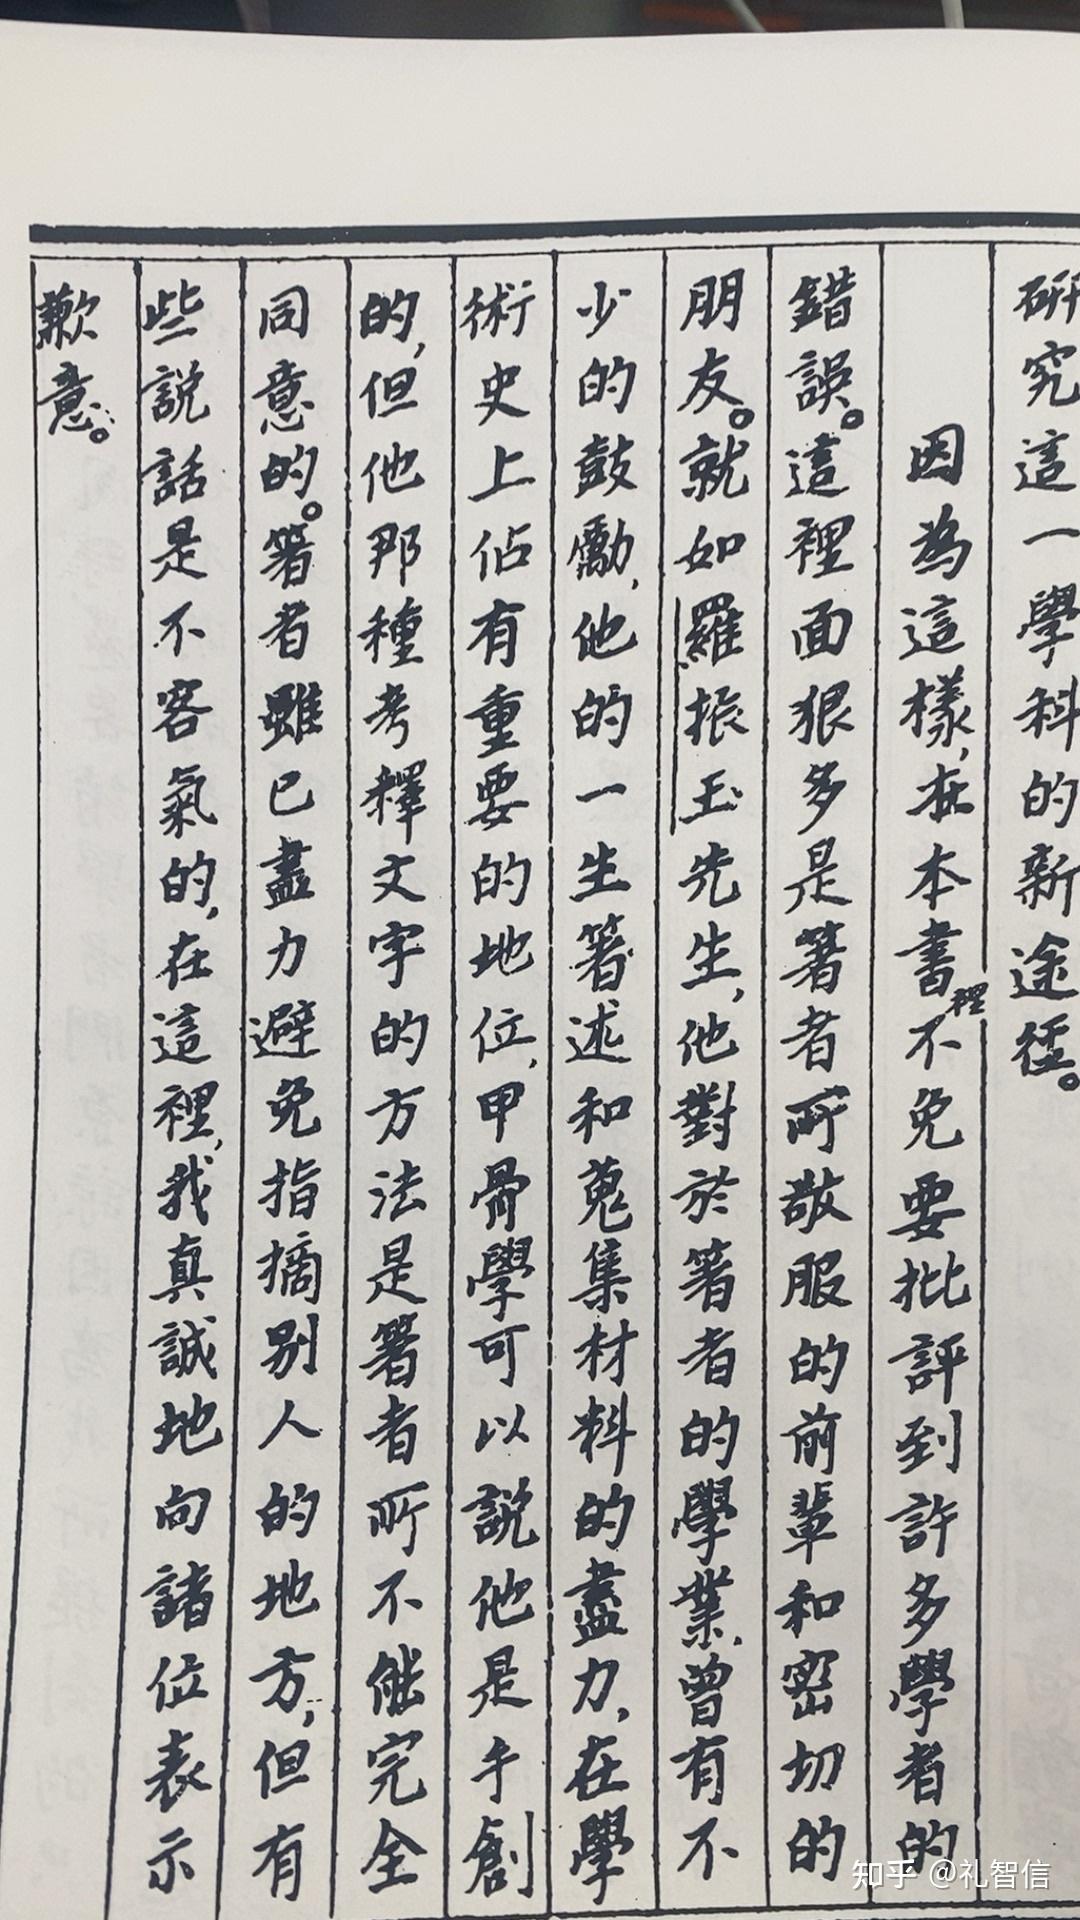 研究這一學科的新途徑。
因為這樣，在本書裡不免要批評到許多學者的
錯誤。這裡面狠多是著者所敬服的前輩和密切的
朋友。就如羅振玉先生，他對於著者的學業，曾有不
少的鼓勵，他的一生著述和蒐集材料的盡力，在學
術史上佔有重要的地位，甲骨學可以說他是手創
的，但他那種考釋文字的方法是著者所不能完全
同意的。著者雖已盡力避免指摘别人的地方，但有
些說話是不客氣的，在這裡，我真誠地向諸位表示
歉意。
知乎 @礼智信